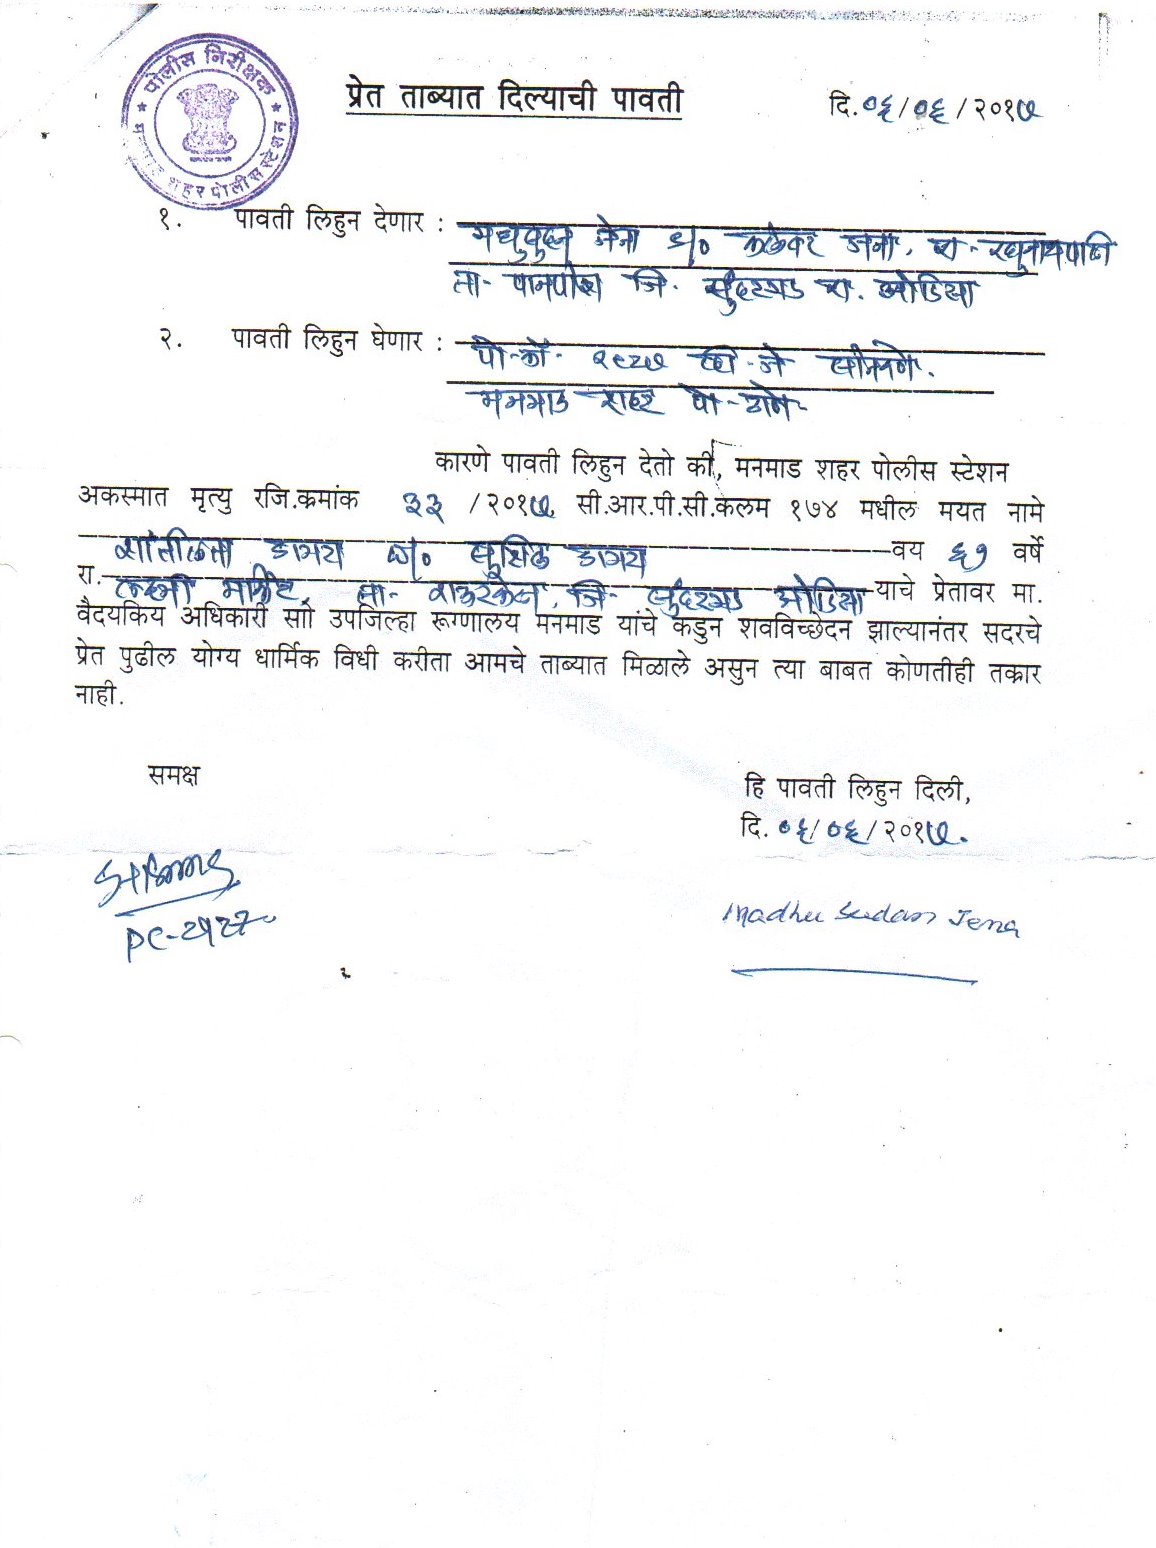 पोलीस निरीक्षक
मनमाड शहर पोलीस स्टेशन
प्रेत ताब्यात दिल्याची पावती
दि.०६/०६/२०१७
१. पावती लिहुन देणार : मधुसुदन जेना s/o कळेवर जेना, रा- रघुनाथपाली
ता- पानपोस जि- सुंदरगड रा. ओडिसा
२. पावती लिहुन घेणार : पो-कॉ-
मनमाड शहर पो-ठाणे-
कारणे पावती लिहुन देतो की, मनमाड शहर पोलीस स्टेशन
अकस्मात मृत्यु रजि.क्रमांक ३३ /२०१७, सी.आर.पी.सी.कलम १७४ मधील मयत नामे
शांतीलता डागय w/o सुशिल डागय वय ६१ वर्षे
रा. लक्ष्मी मार्केट, ता- राऊरकेला, जि- सुंदरगड ओडिसा याचे प्रेतावर मा.
वैदयकिय अधिकारी सााे उपजिल्हा रूग्णालय मनमाड यांचे कडुन शवविच्छेदन झाल्यानंतर सदरचे
प्रेत पुढील योग्य धार्मिक विधी करीता आमचे ताब्यात मिळाले असुन त्या बाबत कोणतीही तक्रार
नाही.
समक्ष
हि पावती लिहुन दिली,
दि. ०६/०६/२०१७.
Madhu Sudan Jena